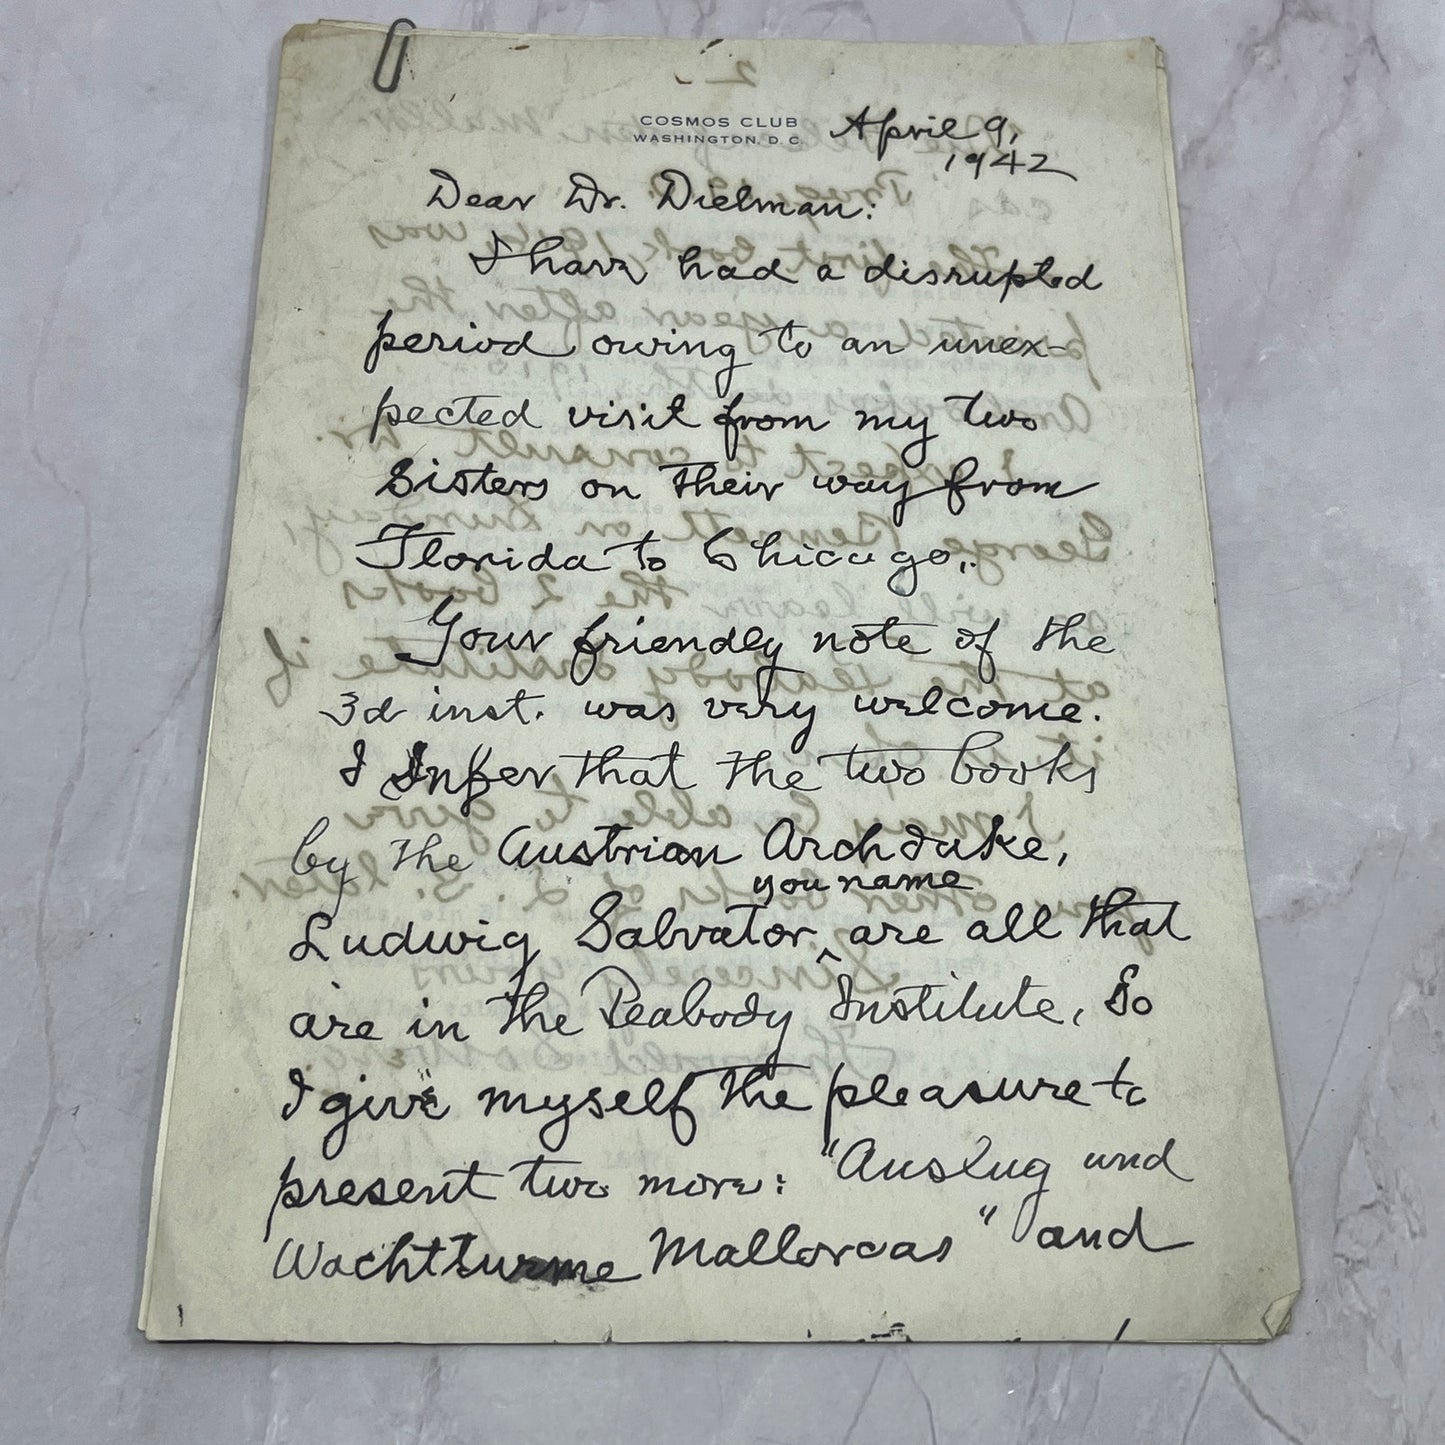 COSMOS CLUB
WASHINGTON, D. C.
April 9,
1942
Dear Dr. Dielman:
I have had a disrupted
period owing to an unex-
pected visit from my two
Sisters on their way from
Florida to Chicago.
Your friendly note of the
3d inst. was very welcome.
I Infer that the two books
by the Austrian Archduke,
you name
Ludwig Salvator ^ are all that
are in the Peabody Institute, So
I give myself the pleasure to
present two more: "Auslug und
Wachtturme Mallorcas" and